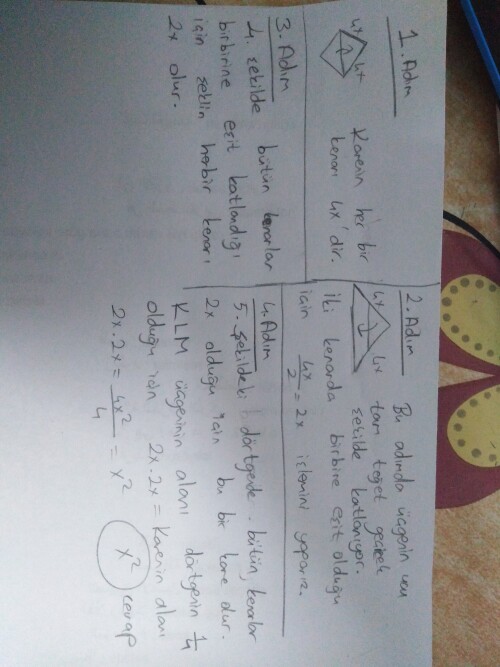 1. Adım
4x
4x
Karenin her bir
kenarı 4x'dir.
2. Adım
4x
4x
Bu adımda üçgenin ucu
tam teğet geçecek
şekilde katlanıyor.
İki kenarda birbire eşit olduğu
için 4x/2 = 2x işlemini yaparız.
3. Adım
4. şekilde bütün kenarlar
birbirine eşit katlandığı
için şeklin herbir kenarı
2x olur.
4. Adım
5. şekildeki dörtgende bütün kenarlar
2x olduğu için bu bir kare olur.
KLM üçgeninin alanı dörtgenin 1/4
olduğu için 2x.2x = Karenin alanı
2x.2x = 4x²/4 = x²
x² cevap